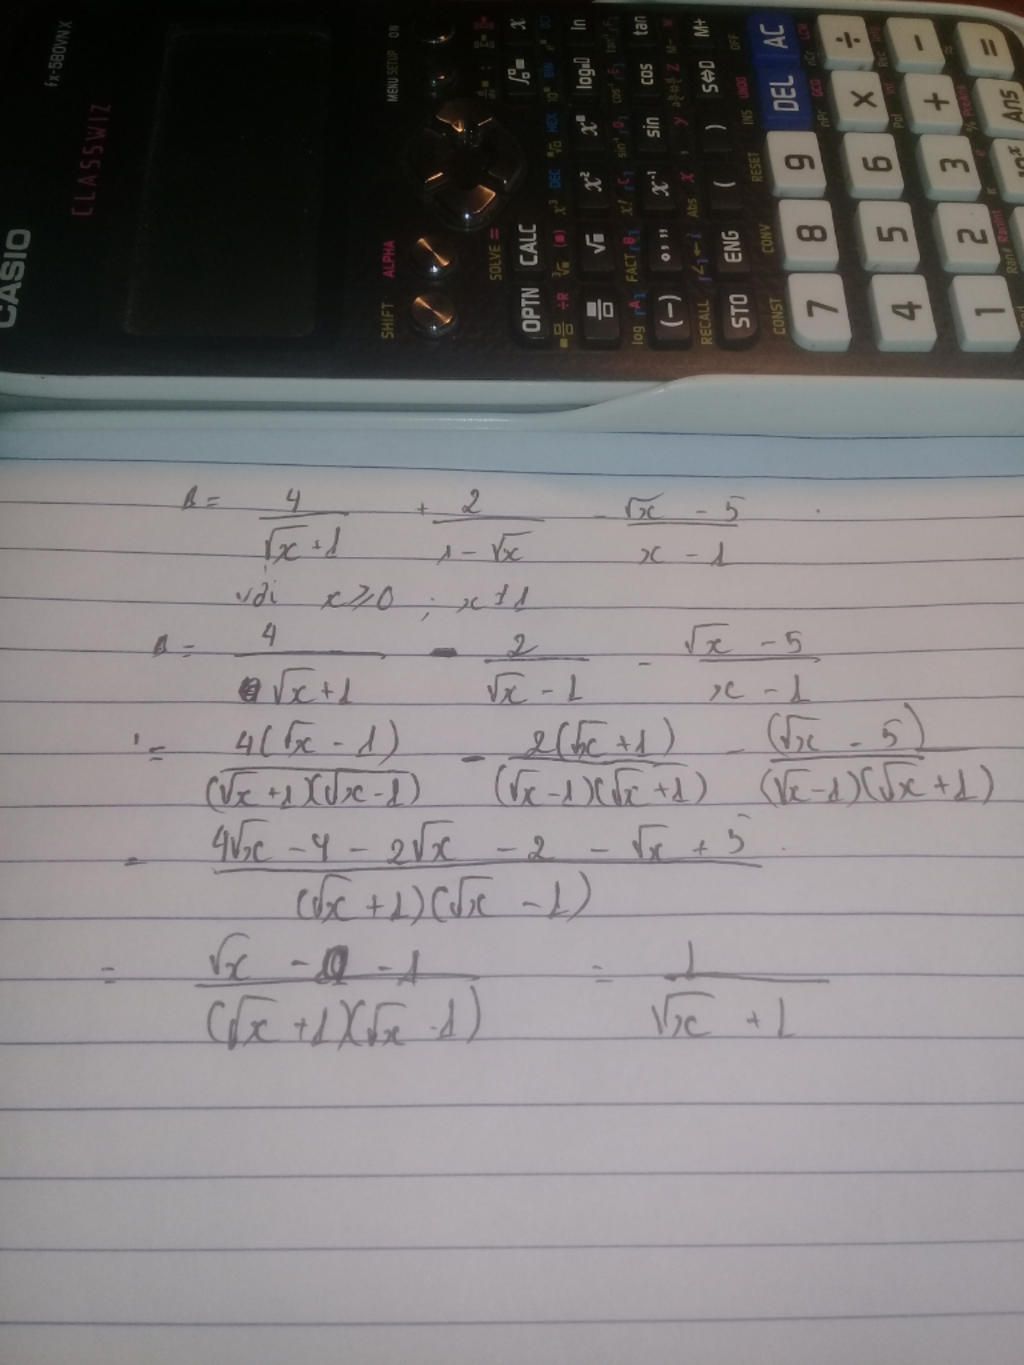 CASIO
fx-880VN X
CLASSWIZ
SHIFT ALPHA MENU SETUP ON
OPTN CALC SOLVE = x
log ln
(-) sin cos tan
STO ENG ( ) S⇔D M+
RECALL
CONST CONV RESET INS UNDO OFF
7 8 9 DEL AC
4 5 6 × ÷
1 2 3 + -
Ans =
B = 4/(√x + 1) + 2/(1 - √x) - (√x - 5)/(x - 1)
với x ≥ 0 ; x ≠ 1
B = 4/(√x + 1) - 2/(√x - 1) - (√x - 5)/(x - 1)
= 4(√x - 1)/((√x + 1)(√x - 1)) - 2(√x + 1)/((√x - 1)(√x + 1)) - (√x - 5)/((√x - 1)(√x + 1))
= (4√x - 4 - 2√x - 2 - √x + 5)/((√x + 1)(√x - 1))
= (√x - 1)/((√x + 1)(√x - 1)) = 1/(√x + 1)